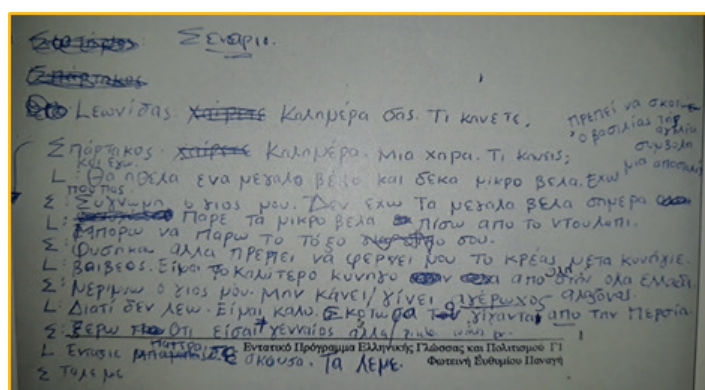 Σενάριο.
Σπάρτακος
Λεωνίδας: χαίρετε Καλημέρα σας. Τι κανετε,
πρεπει να σκοτ
ο βασιλιάς της
αγγλία
συμβολα
μια αποστολή
Σπάρτακος. χαίρετε Καλημέρα. Μια χαρα. Τι κανεις;
και εγω.
L: Θα ηθελα ενα μεγαλο βελο και δεκα μικρο βελα. Εχω
Σ: Συγνωμη ο γιος μου. Δεν εχω Τα μεγαλα βελα σημερα
Παρε τα μικρο βελα πισω απο το ντουλαπι.
L: Μπορω να παρω το τοξο σου.
Σ: Φυσηκα αλλα πρεπει να φερνει μου το κρέας μετα κυνήγιε.
L: βαιβεος. Είμαι το καλύτερο κυνηγο απο όλη στην ολα ελλαδα.
Σ: Νεριμνω ο γιος μου. Μην κάνει/γίνει αγέρωχος αλαζόνας.
L: Διατί δεν λεω. Ειμαι καλο. Σκρτωσα γίγαντας απο την Περσία.
Σ: Ξερω Οτι είσαι γενναίος αλλα
L Ενταξις σκουσα. Τα λεμε.
Σ Τα λε με
1
Εντατικό Πρόγραμμα Ελληνικής Γλώσσας και Πολιτισμού Γ1
Φωτεινή Ευθυμίου Παναγή